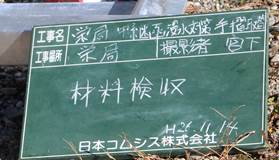 工事名 栄局 中継所浸水対策 手摺取替
工事場所 栄局 撮影者 宮下
材料検収
H26.11.14
日本コムシス株式会社